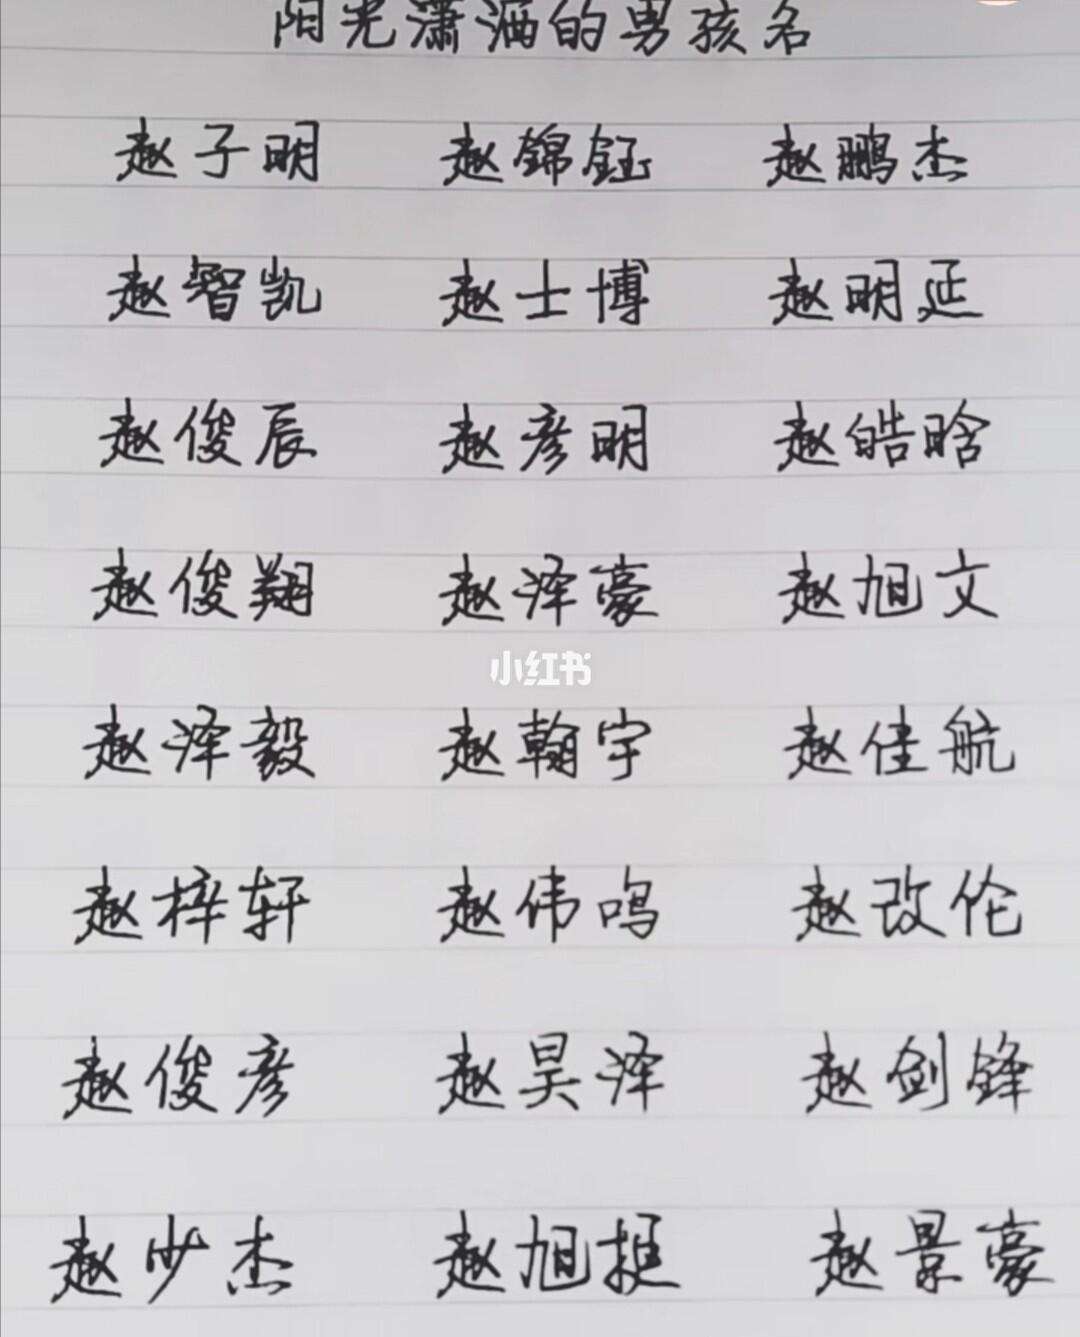 阳光潇洒的男孩名
赵子明 赵锦钰 赵鹏杰
赵智凯 赵士博 赵明延
赵俊辰 赵彦明 赵皓晗
赵俊翔 赵泽豪 赵旭文
小红书
赵泽毅 赵翰宇 赵佳航
赵梓轩 赵伟鸣 赵改伦
赵俊彦 赵昊泽 赵剑锋
赵少杰 赵旭挺 赵景豪